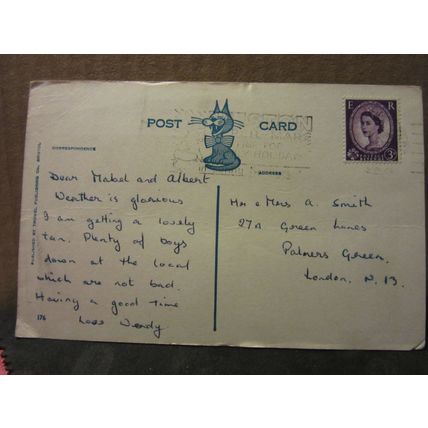 POST CARD
E R
3D
CORRESPONDENCE
ADDRESS
Dear Mabel and Albert
Weather is glorious
I am getting a lovely
tan. Plenty of boys
down at the local
which are not bad.
Having a good time
Love Wendy
Mr & Mrs A. Smith
27A Green Lanes
Palmers Green,
London, N. 13.
176